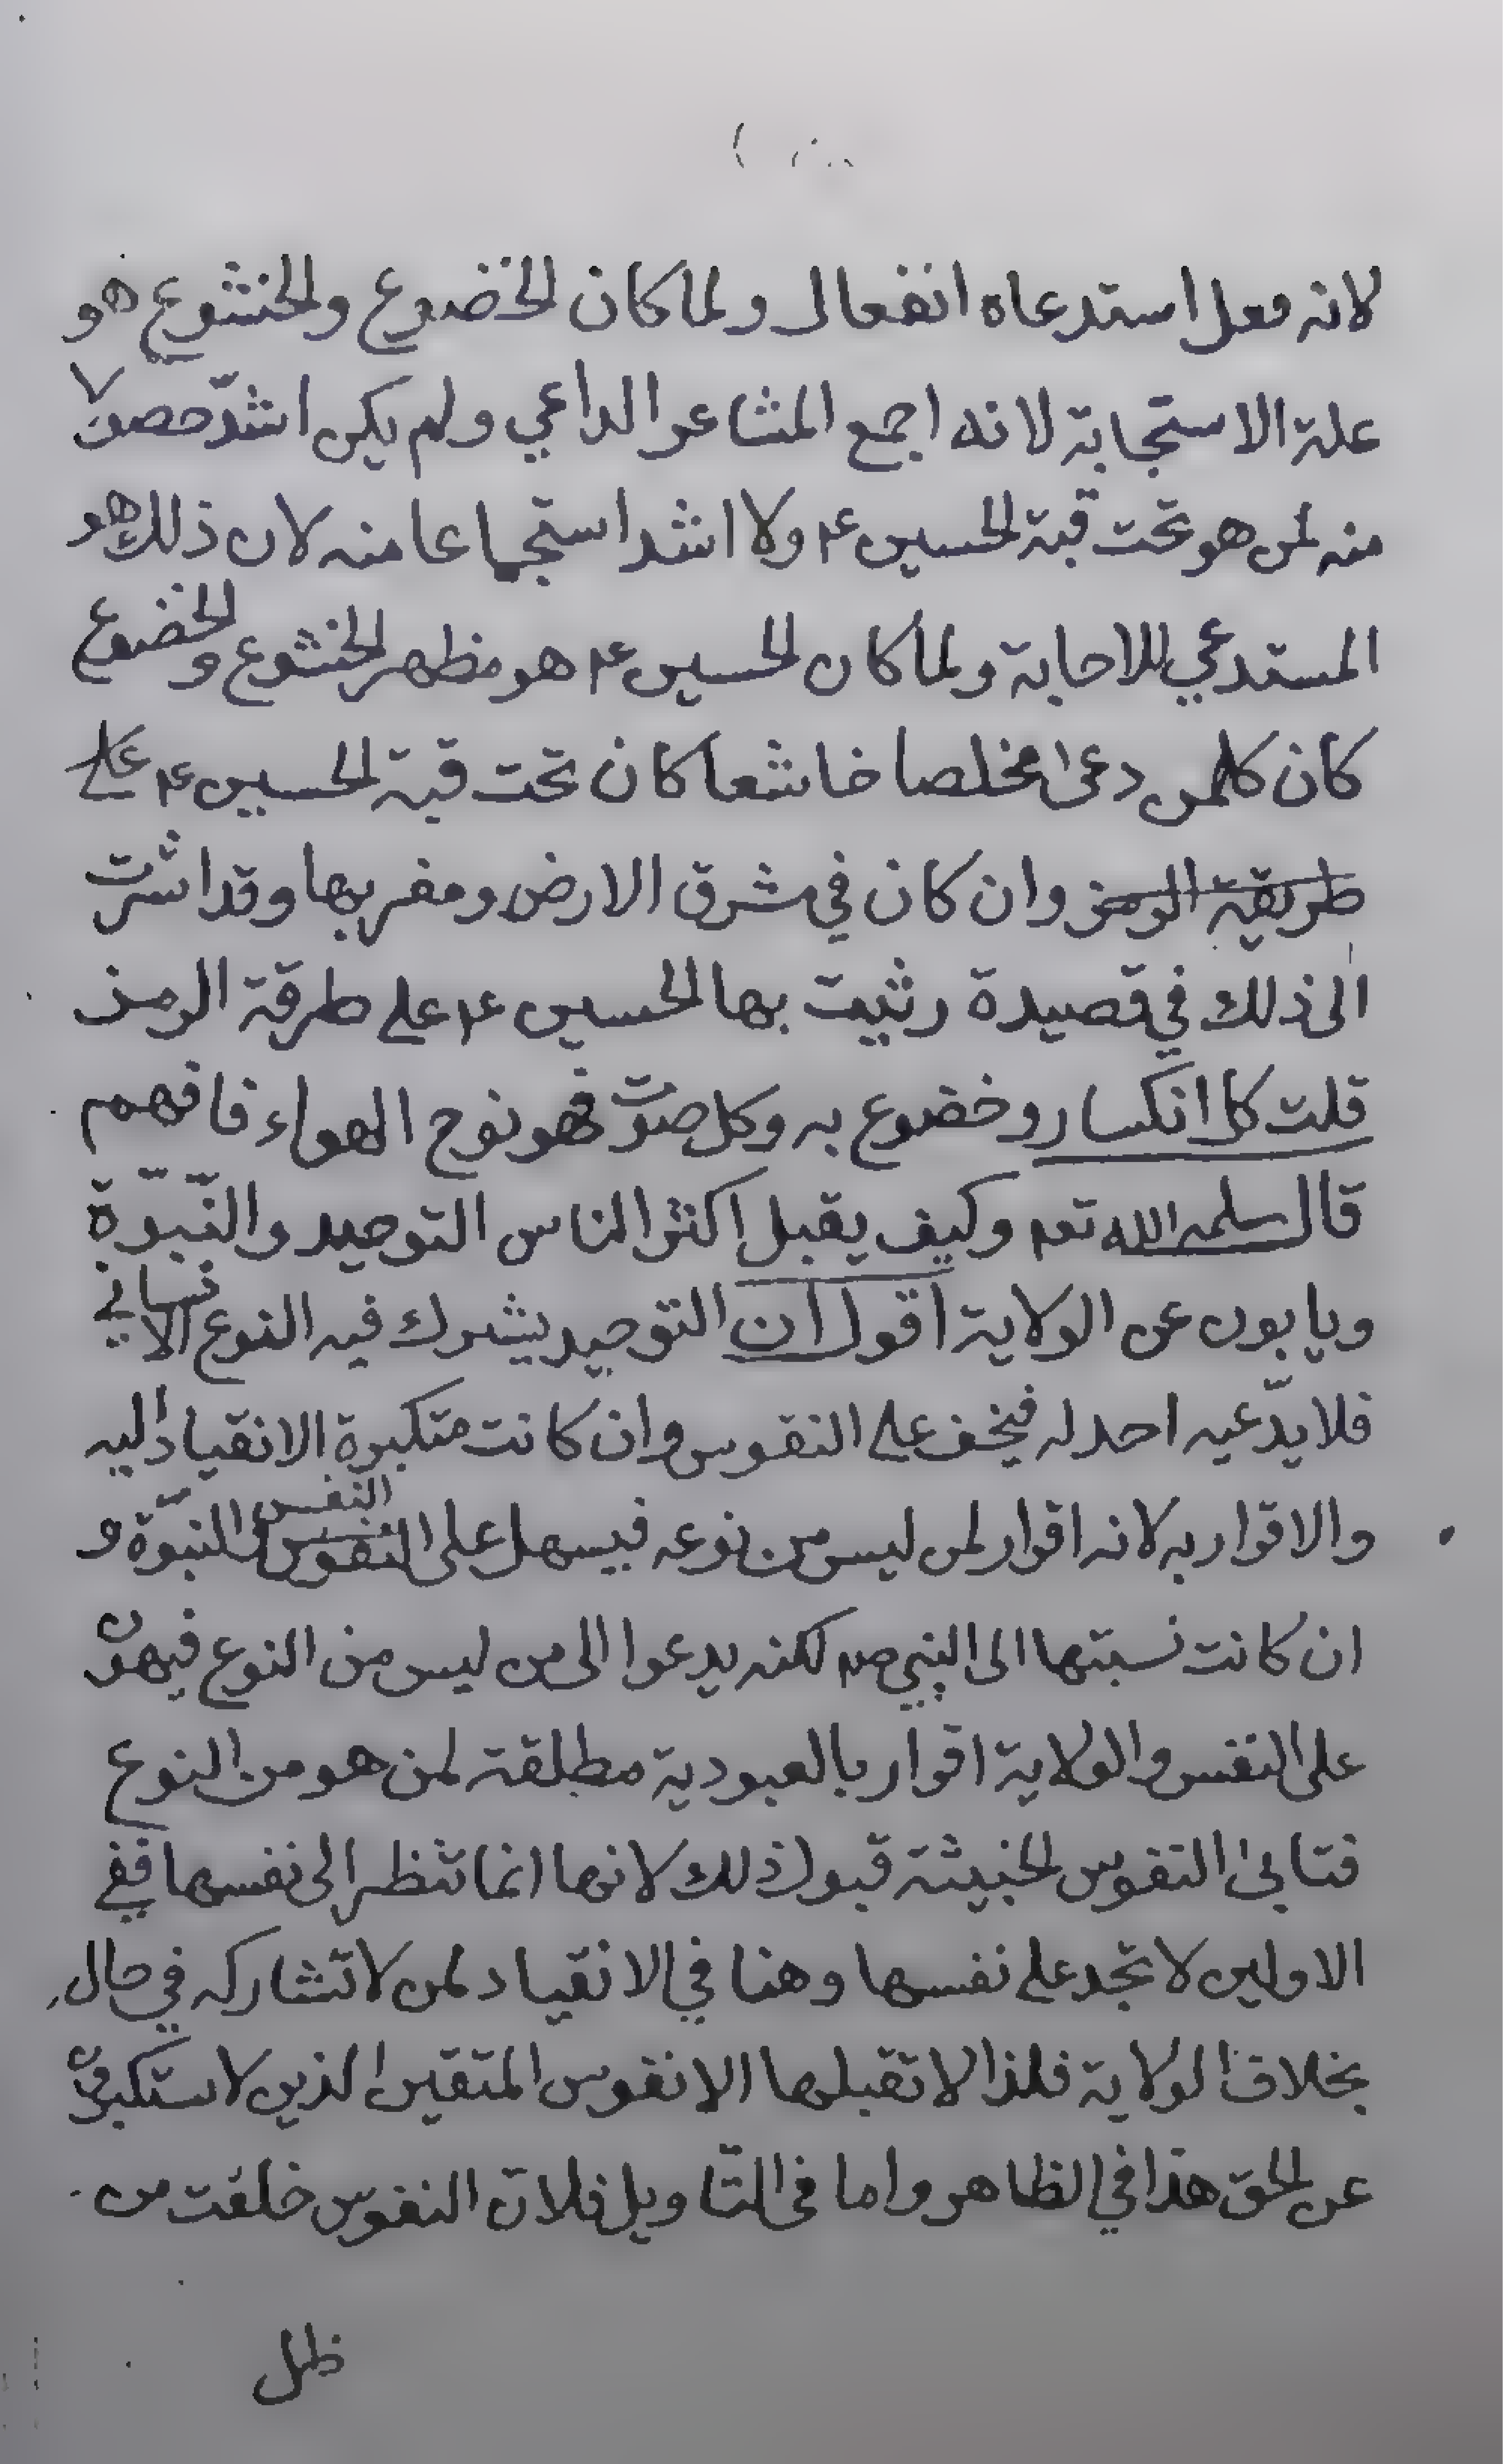 لانه فعل استدعاه انفعال ولما كان الخضوع والخشوع هو
علة الاستجابة لانه اجمع المشاعر الداعي ولم يكن اشدّ حصولا
منه لمن هو تحت قبة الحسين ع۴ ولا اشد استجماعا منه لان ذلك هو
المستدعي للاجابة ولما كان الحسين ع۴ هو مظهر الخشوع والخضوع
كان كلمن دعى مخلصا خاشعا كان تحت قبة الحسين ع۴ على
طريقة الرمز وان كان في شرق الارض ومغربها وقد اشرت
الى ذلك في قصيدة رثيت بها الحسين ع۴ على طرقة الرمز
قلت كل انكسار وخضوع به وكل صوت فهو نوح الهواء فافهم
قال سلمه الله تعم وكيف يقبل اكثر الناس التوحيد والنّبوّة
ويابون عن الولاية اقول ان التوحيد يشرك فيه النوع الانساني
فلا يدّعيه احد له فيخف على النفوس وان كانت متكبرة الانقياد اليه
والاقرار به لانه اقرار لمن ليس من نوعه فيسهل على النفوس النفس والنبوّة و
ان كانت نسبتها الى النبي ص۴ لكنه يدعوا الى من ليس من النوع فيهون
على النفس والولاية اقرار بالعبودية مطلقة لمن هو من النوع
فتابى النفوس الخبيثة قبول ذلك لانها انما تنظر الى نفسها ففي
الاولين لا تجد على نفسها وهنا في الانقياد لمن لا تشاركه في حال
بخلاف الولاية فلذا لا تقبلها الا نفوس المتقين الذين لا استكبرون
عن الحق هذا في الظاهر واما في التاويل فلان النفوس خلقت من
ظل